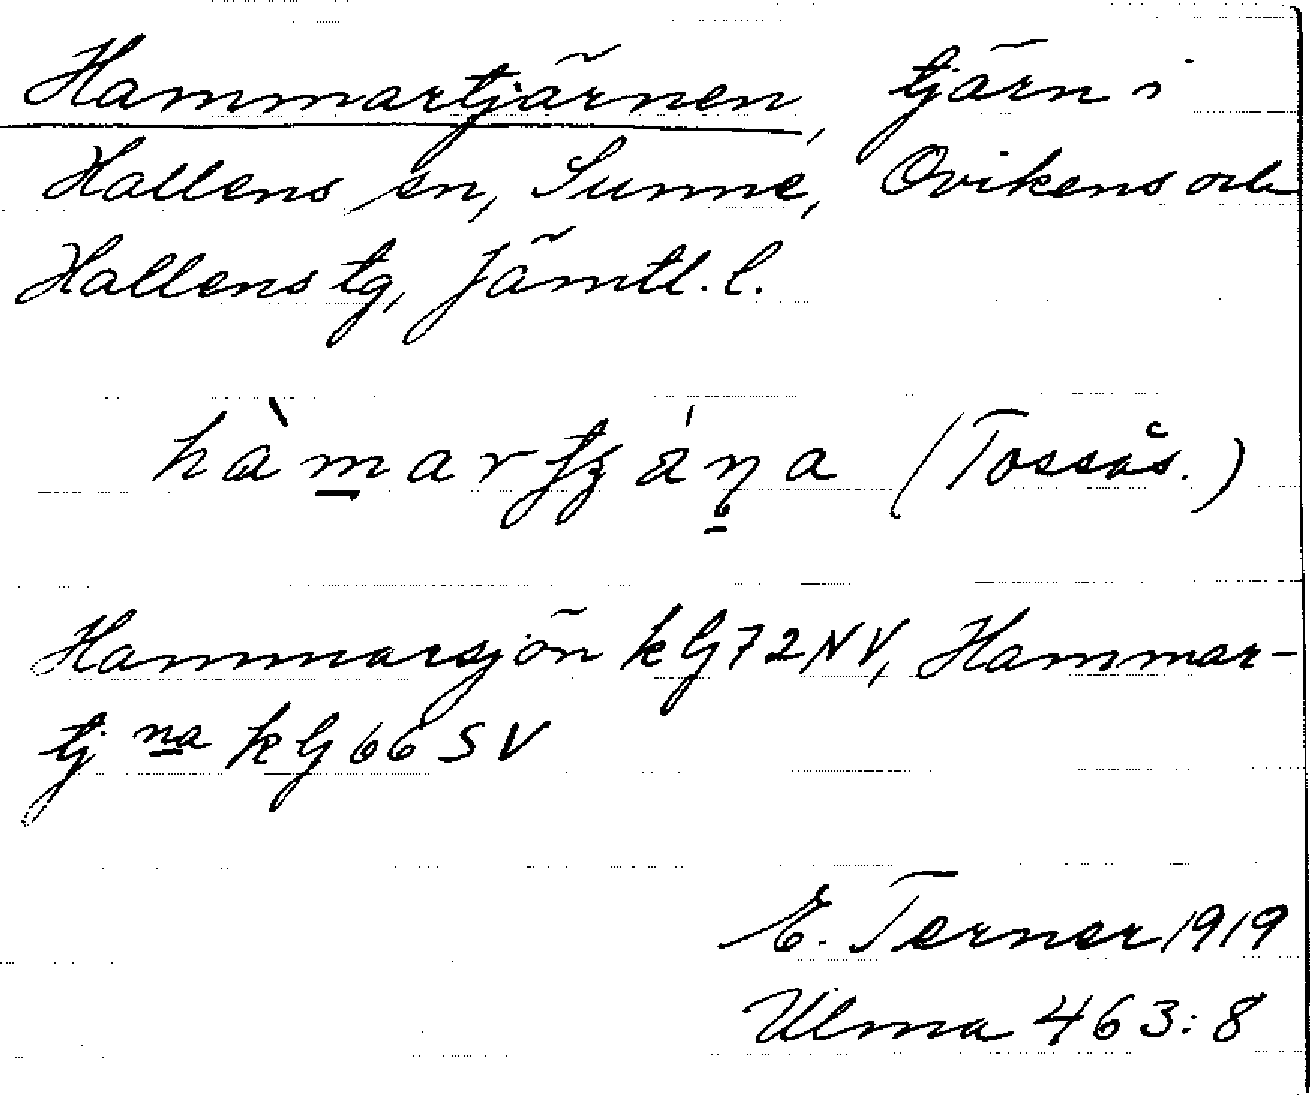 Hammartjärnen, tjärn i
Hallens sn, Sunne, Ovikens och
Hallens tg, Jämtl. l.
(Tossås.)
Hammarsjön k G 72 NV, Hammar-
tj na k G 66 SV
E. Terner 1919
Ulma 463:8